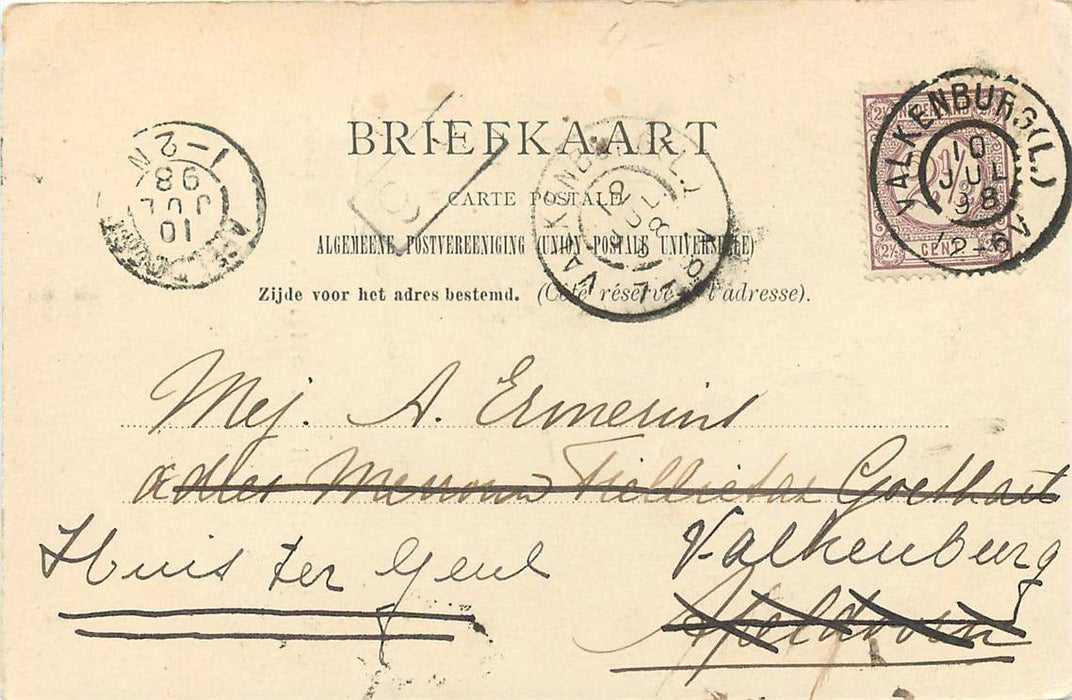 BRIEFKAART
CARTE POSTALE
ALGEMEENE POSTVEREENIGING (UNION POSTALE UNIVERSELLE)
Zijde voor het adres bestemd. (Côté réservé à l'adresse).
VALKENBURG(L.)
10
JUL
98
12-6V
2½
CENT
VALKENBURG(L.)
10
JUL
98
1-2N
10
JUL
98
Mej. A. Ermerins
adres Mevrouw Goethart
Huis ter Geul
Valkenburg
Apeldoorn